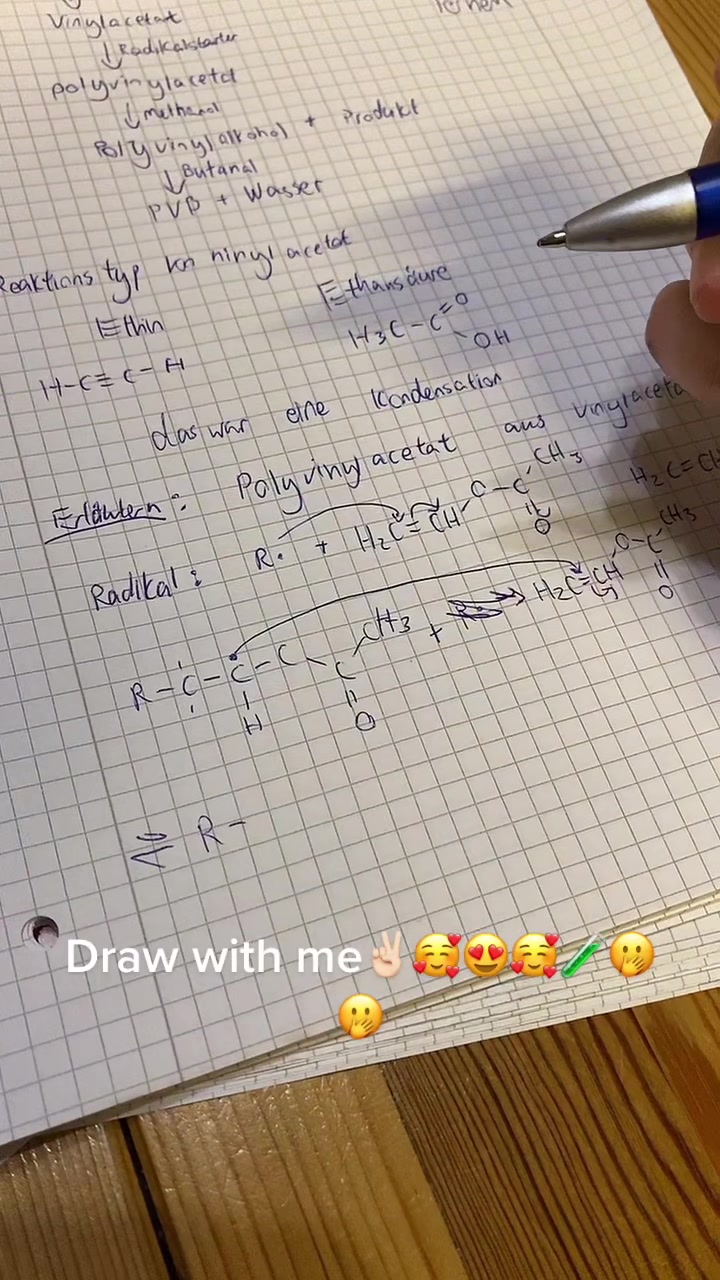 Vinylacetat
↓ Radikalstarter
polyvinylacetat
↓ methanol
Polyvinylalkohol + Produkt
↓ Butanal
PVB + Wasser
Reaktionstyp
Ethin
Ethansäure
H-C≡C-H
H3C-C=O
OH
das war eine Kondensation
Erläutern: Polyvinylacetat aus vinylaceta
Radikal: R• + H2C=CH O-C CH3
O
H2C=CH
R-C-C-C C CH3 +
H
O
H2C=CH O-C CH3
O
R-
Draw with me✌🏻🥰😍🥰🧪🤭
🤭